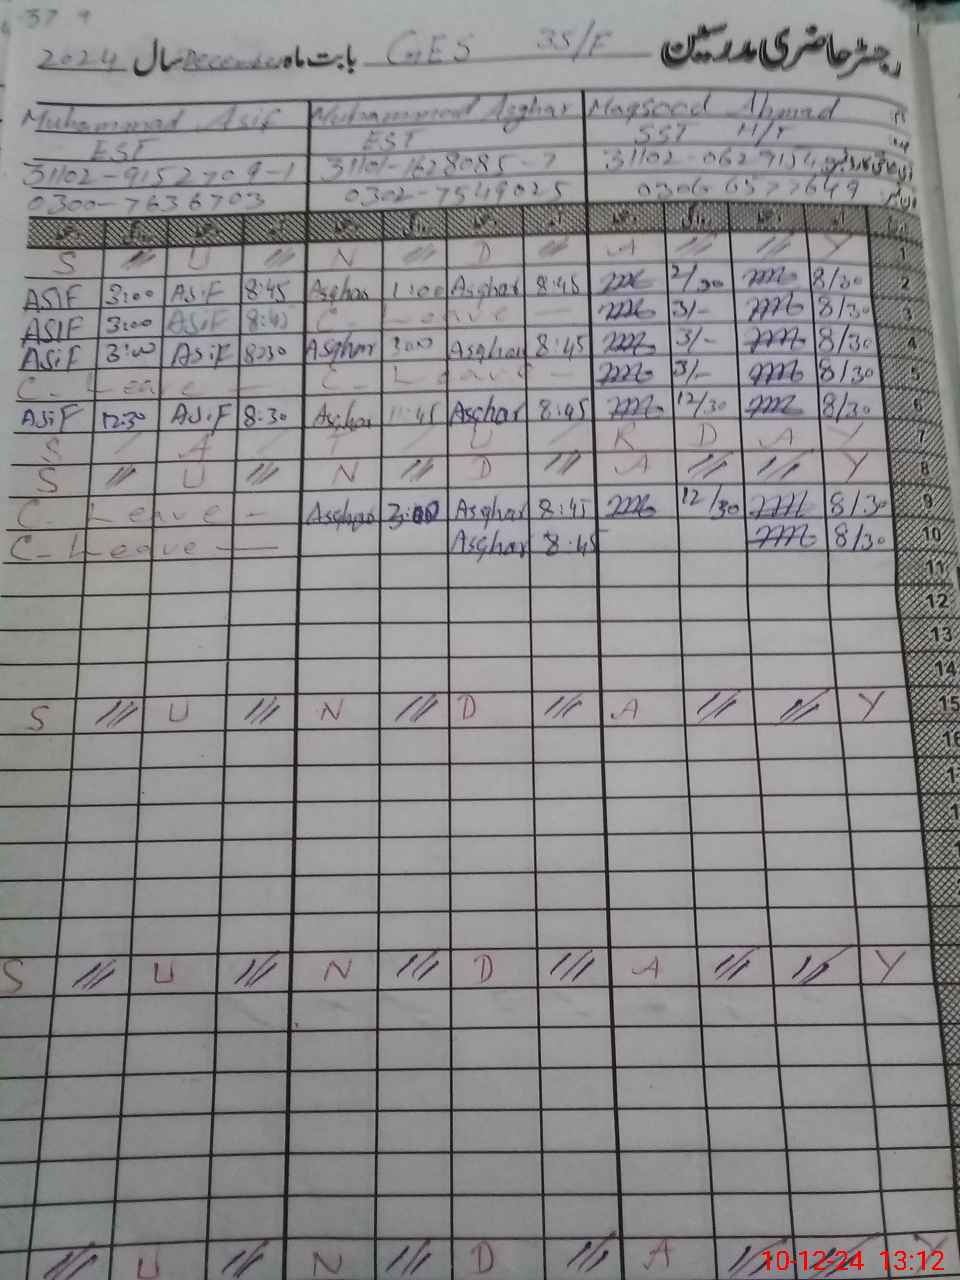 37 9
رجسٹر حاضری مدرسین GES 35/F بابت ماہ December سال 2024
Muhammad Asif Muhammad Asghar Maqsood Ahmad
EST EST SST H/T
31102-9152709-1 31101-1628085-7 31102-0629154
0300-7636703 0302-7549025 0306 6577649
S /// U /// N /// D /// A /// /// Y 1
ASIF 3:00 ASiF 8:45 Asghar 1:00 Asghar 8:45 2/30 8/30 2
ASIF 3:00 ASiF 8:45 C- Leave — 3/- 8/30 3
ASiF 3:00 ASiF 8:30 Asghar 3:00 Asghar 8:45 3/- 8/30 4
C- Leave — C- Leave — 3/- 8/30 5
ASiF 12:30 ASiF 8:30 Asghar 11:45 Asghar 8:45 12/30 8/30 6
S / A / T / U / R D A Y 7
S /// U /// N /// D /// A /// /// Y 8
C- Leave — Asghar 3:00 Asghar 8:45 12/30 8/30 9
C- Leave — Asghar 8:45 8/30 10
11
12
13
14
S /// U /// N /// D /// A /// /// Y 15
16
S /// U /// N /// D /// A /// /// Y
/// U /// N /// D /// A /// /// Y
10-12-24 13:12